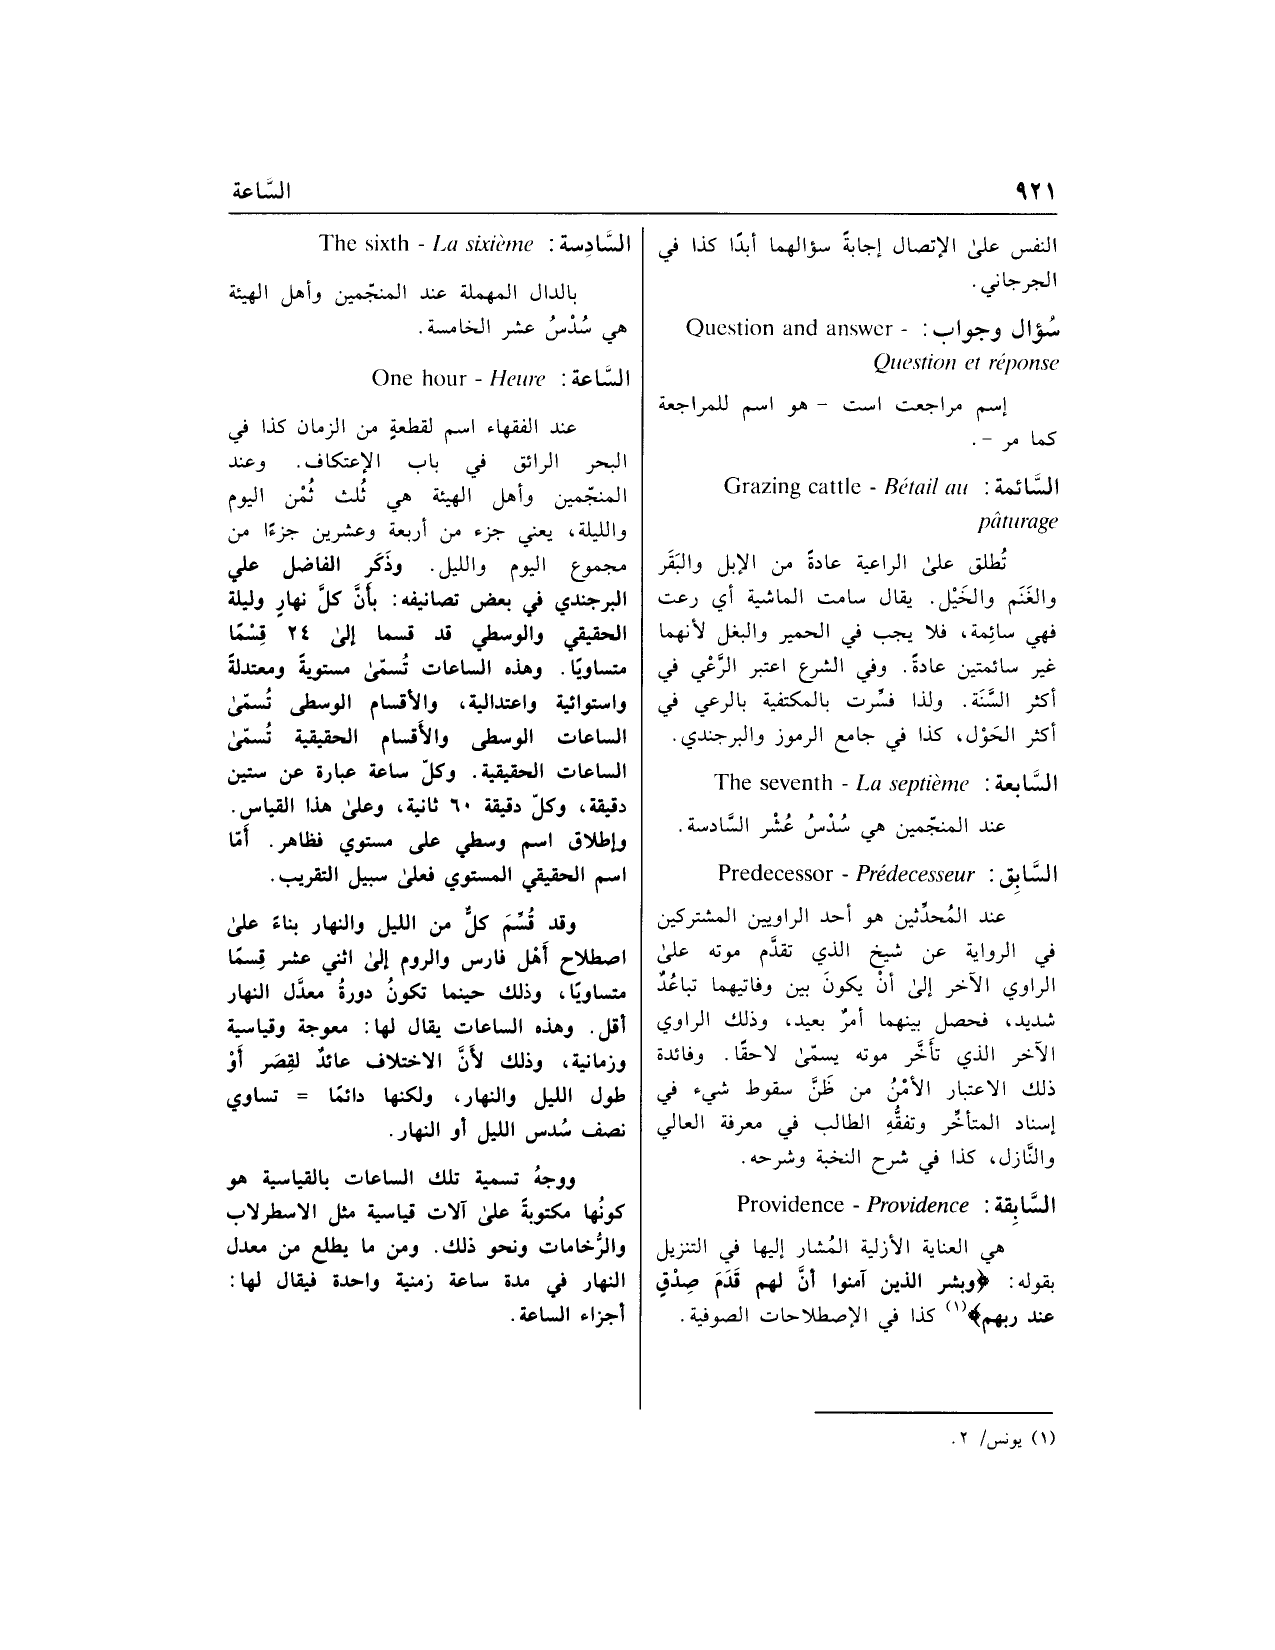 ٩٢١
السَّاعة
النفس علىٰ الإتصال إجابةً سؤالهما أبدًا كذا في
الجرجاني.
سُؤال وجواب: Question and answer -
Question et réponse
إسم مراجعت است – هو اسم للمراجعة
كما مر –.
السَّائمة: Grazing cattle - Bétail au
pâturage
تُطلق علىٰ الراعية عادةً من الإبل والبَقَر
والغَنَم والخَيْل. يقال سامت الماشية أي رعت
فهي سائِمة، فلا يجب في الحمير والبغل لأنهما
غير سائمتين عادةً. وفي الشرع اعتبر الرَّعْي في
أكثر السَّنَة. ولذا فسِّرت بالمكتفية بالرعي في
أكثر الحَوْل، كذا في جامع الرموز والبرجندي.
السَّابعة: The seventh - La septième
عند المنجّمين هي سُدْسُ عُشْر السَّادسة.
السَّابِق: Predecessor - Prédecesseur
عند المُحدِّثين هو أحد الراويين المشتركين
في الرواية عن شيخ الذي تقدَّم موته علىٰ
الراوي الآخر إلىٰ أنْ يكونَ بين وفاتيهما تباعُدٌ
شديد، فحصل بينهما أمرٌ بعيد، وذلك الراوي
الآخر الذي تأخَّر موته يسمّىٰ لاحقًا. وفائدة
ذلك الاعتبار الأمْنُ من ظَنَّ سقوط شيء في
إسناد المتأخِّر وتفقُّهِ الطالب في معرفة العالي
والنَّازل، كذا في شرح النخبة وشرحه.
السَّابِقة: Providence - Providence
هي العناية الأزلية المُشار إليها في التنزيل
بقوله: ﴿وبشر الذين آمنوا أنَّ لهم قَدَمَ صِدْقٍ
عند ربهم﴾(١) كذا في الإصطلاحات الصوفية.
السَّادِسة: The sixth - La sixième
بالدال المهملة عند المنجّمين وأهل الهيئة
هي سُدْسُ عشر الخامسة.
السَّاعة: One hour - Heure
عند الفقهاء اسم لقطعةٍ من الزمان كذا في
البحر الرائق في باب الإعتكاف. وعند
المنجّمين وأهل الهيئة هي ثُلث ثُمْن اليوم
والليلة، يعني جزء من أربعة وعشرين جزءًا من
مجموع اليوم والليل. وذَكَر الفاضل علي
البرجندي في بعض تصانيفه: بأنَّ كلَّ نهارٍ وليلة
الحقيقي والوسطي قد قسما إلىٰ ٢٤ قِسْمًا
متساويًا. وهذه الساعات تُسمّىٰ مستويةً ومعتدلةً
واستوائية واعتدالية، والأقسام الوسطى تُسمّىٰ
الساعات الوسطى والأقسام الحقيقية تُسمّىٰ
الساعات الحقيقية. وكلّ ساعة عبارة عن ستين
دقيقة، وكلّ دقيقة ٦٠ ثانية، وعلىٰ هذا القياس.
وإطلاق اسم وسطي على مستوي فظاهر. أمّا
اسم الحقيقي المستوي فعلىٰ سبيل التقريب.
وقد قُسِّمَ كلٌّ من الليل والنهار بناءً علىٰ
اصطلاح أَهْل فارس والروم إلىٰ اثني عشر قِسمًا
متساويًا، وذلك حينما تكونُ دورةُ معدَّل النهار
أقل. وهذه الساعات يقال لها: معوجة وقياسية
وزمانية، وذلك لأنَّ الاختلاف عائدٌ لقِصَر أَوْ
طول الليل والنهار، ولكنها دائمًا = تساوي
نصف سُدس الليل أو النهار.
ووجهُ تسمية تلك الساعات بالقياسية هو
كونُها مكتوبةً علىٰ آلات قياسية مثل الاسطرلاب
والرُّخامات ونحو ذلك. ومن ما يطلع من معدل
النهار في مدة ساعة زمنية واحدة فيقال لها:
أجزاء الساعة.
(١) يونس/ ٢.